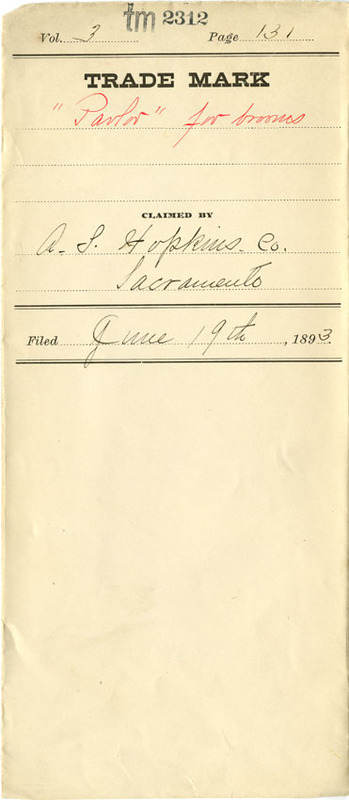 tm 2312
Vol. 3 Page 131
TRADE MARK
"Parlor" for brooms
CLAIMED BY
A. S. Hopkins Co.
Sacramento
Filed June 19th, 1893.